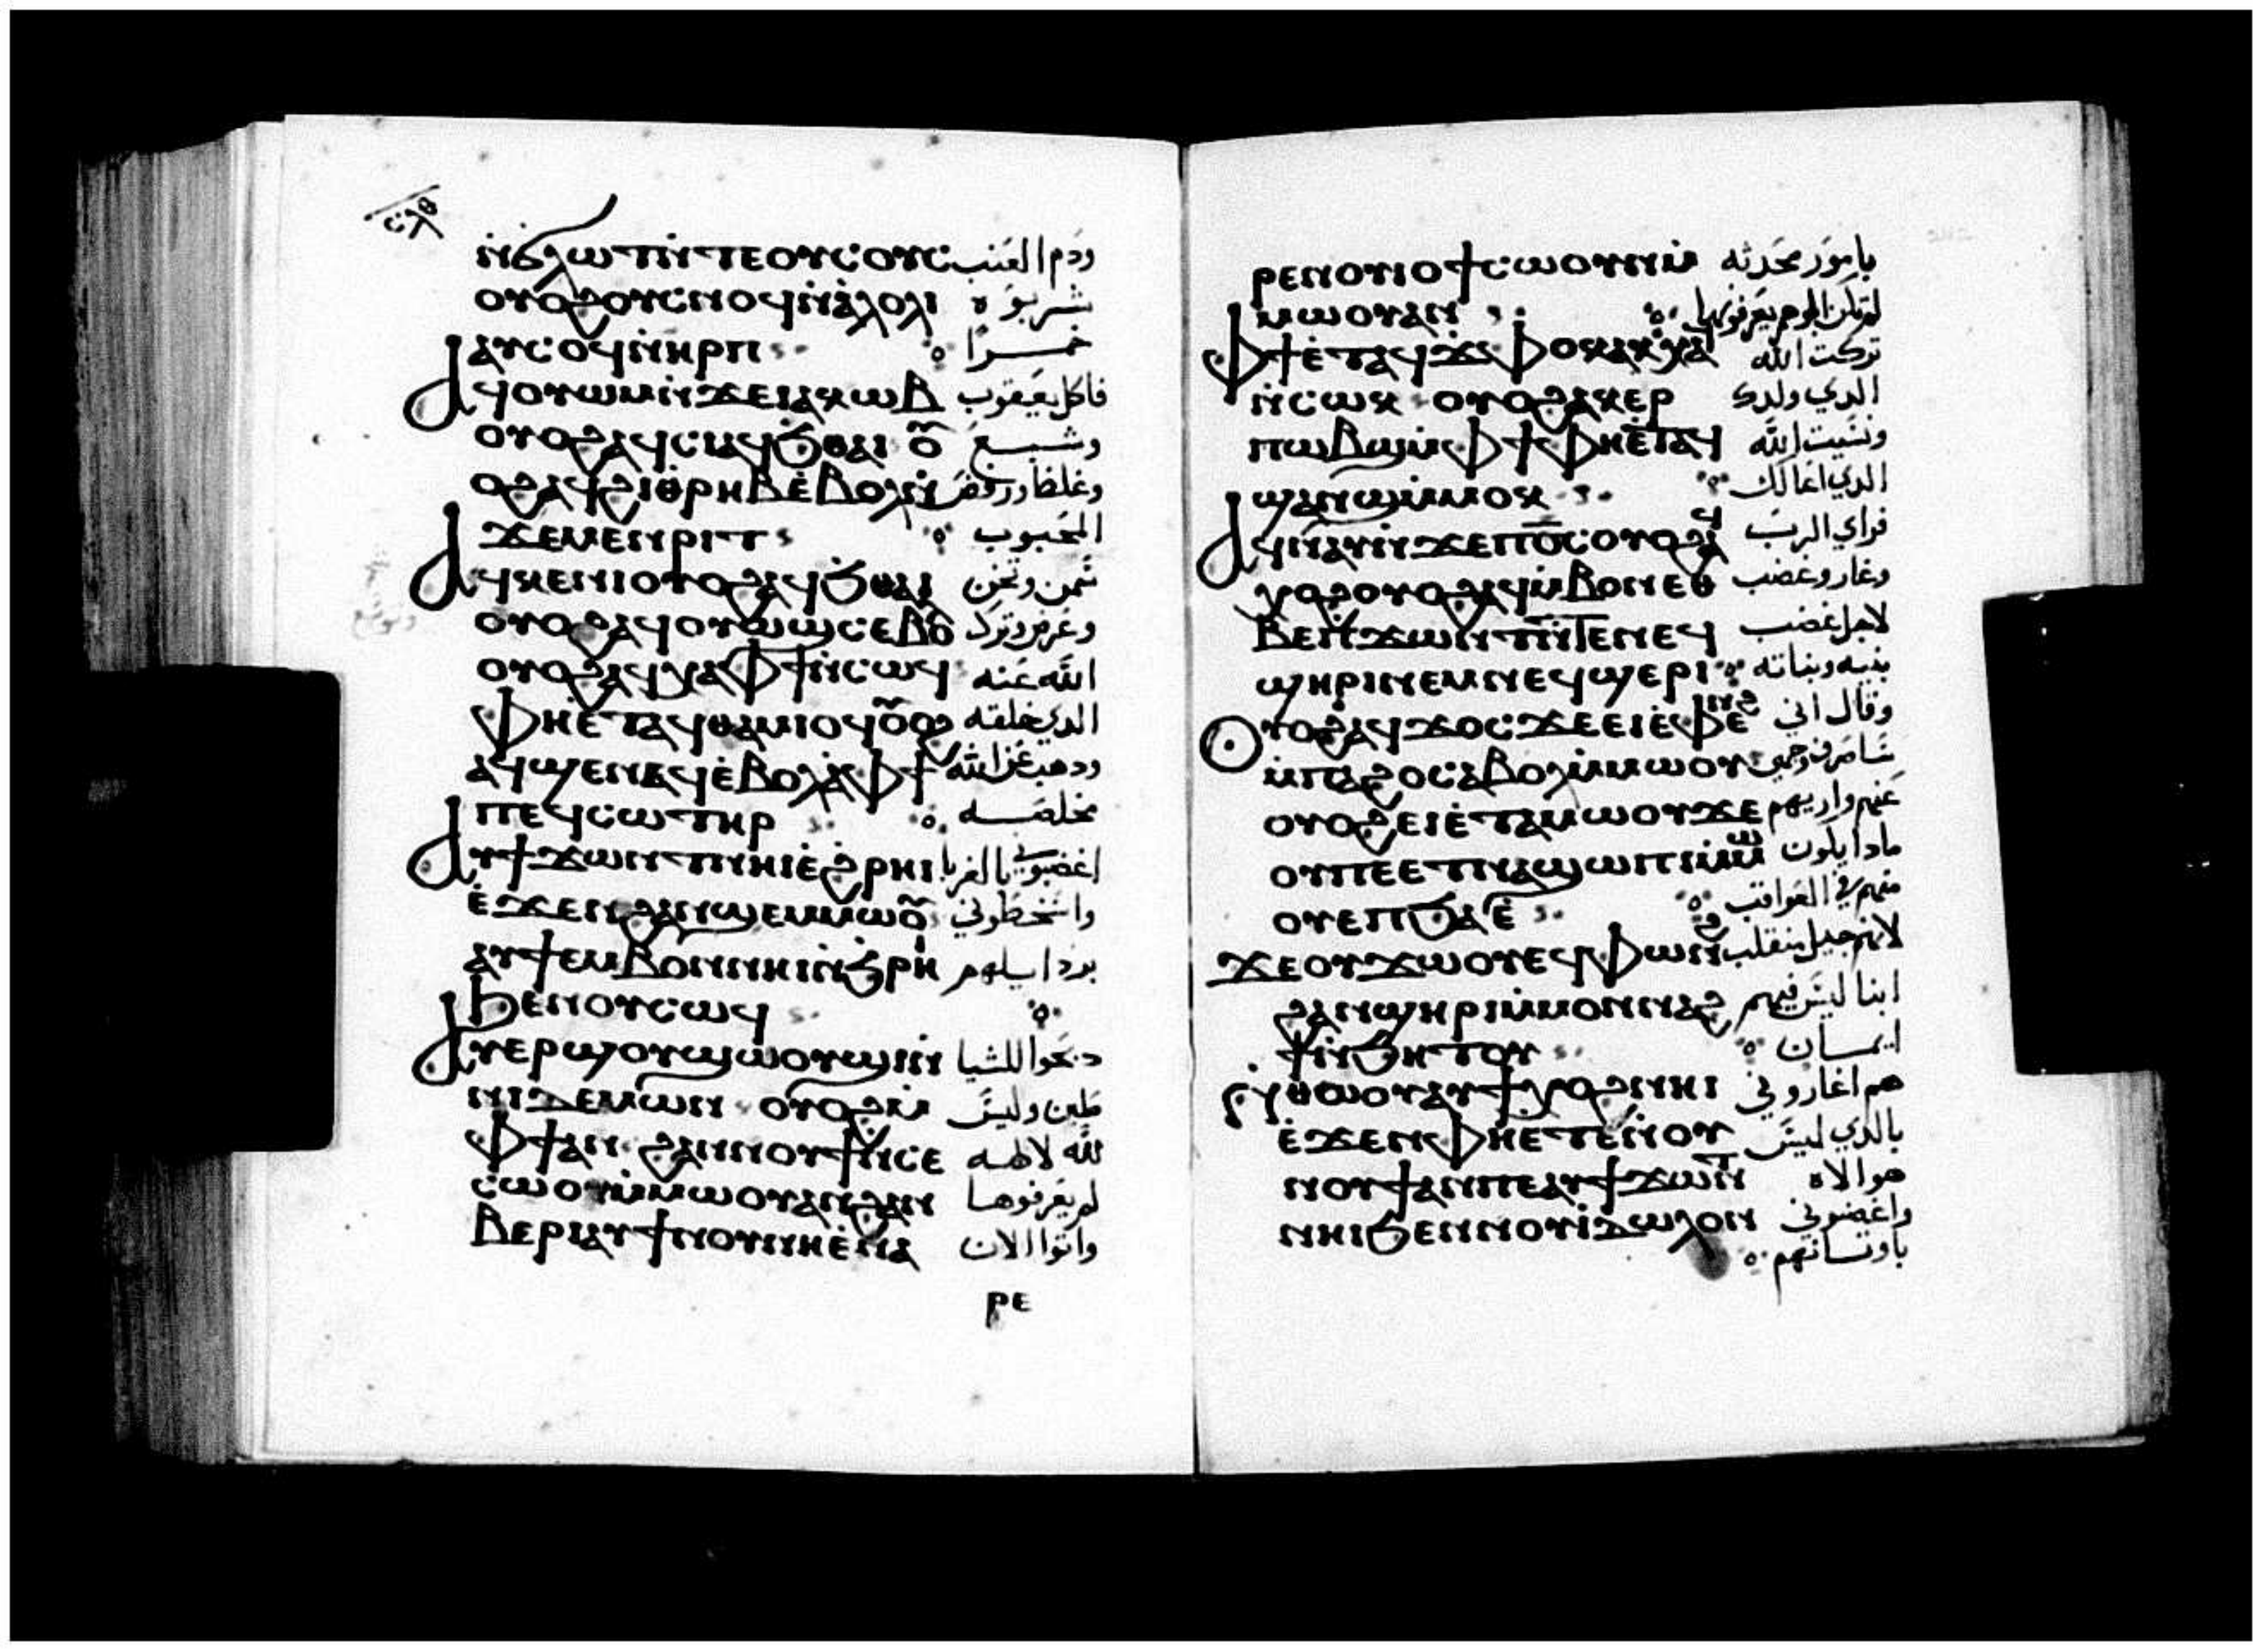 ⲥⲗⲑ
ⲛ̇ϭⲗⲱⲧ ⲛ̇ⲧⲉⲟⲩⲥⲟⲩⲟ ودم العنب
ⲟⲩⲟϩⲟⲩⲥⲛⲟϥⲛ̇ⲁ̇ⲗⲟⲗⲓ شربوه
ⲁⲩⲥⲟϥⲛ̇ⲏⲣⲡ خمرا
ⲁϥⲟⲩⲱⲙⲛ̇ϫⲉⲓⲁⲕⲱⲃ فاكل يعقوب
ⲟⲩⲟϩⲁϥⲥⲓⲁϥϧⲑⲁⲓ ⲟⲩ وشبع
ⲟϩⲁϥϩⲓⲑⲣⲏⲃⲉ̇ⲃⲟⲗⲛ̇ وغلظ ورفض
ϫⲉⲙⲉⲛⲣⲓⲧ المحبوب
ⲁϥⲕⲉⲛⲓⲟⲩⲟϩⲁϥϧⲑⲁⲓ سمن وثخن
ⲟⲩⲟϩⲁϥⲟⲩⲱϣⲥⲉⲃⲟⲗ وعرض وترك
ⲟⲩⲟϩⲁϥⲭⲁⲫϯⲛ̇ⲥⲱϥ الله عنه
ⲫⲏⲉ̇ⲧⲁϥⲑⲁⲙⲓⲟϥⲟⲩⲟϩ الدي خلقه
ⲁϥϣⲉⲛⲁϥⲉ̇ⲃⲟⲗϩⲁⲫϯ ودهب عن الله
ⲡⲉϥⲥⲱⲧⲏⲣ مخلصه
ⲁⲩϯϫⲱⲛⲧ ⲛⲏⲓⲉ̇ϩⲣⲏⲓ اغضبوني بالغربا
ⲉ̇ϫⲉⲛϩⲁⲛϣⲉⲙⲙⲱⲟⲩ واسخطوني
ⲁⲩϯⲉⲙⲃⲟⲛⲛⲏⲓⲛ̇ϧⲣⲏ بردايلهم
ϧⲉⲛⲟⲩⲥⲱϥ
ⲁⲩⲉⲣϣⲟⲩϣⲱⲟⲩϣⲓⲛ̇ دبحوا للشيا
ⲛⲓⲇⲉⲙⲱⲛ ⲟⲩⲟϩⲙ̇ طين وليس
ⲫϯⲁⲛ ϩⲁⲛⲛⲟⲩϯⲛ̇ⲥⲉ لله لالهه
ⲥⲱⲟⲩⲛⲙ̇ⲙⲱⲟⲩⲁⲛϩⲁⲛ لم يعرفوها
ⲃⲉⲣⲓⲁⲩϯⲛⲟⲩⲛⲏⲉ̇ⲛⲁ واتوا الان
ⲣⲉ
ⲣⲉⲛⲟⲩⲓⲟϯⲥⲱⲟⲩⲛⲙ̇ بامور محدثه
ⲙⲱⲟⲩⲁⲛ لم تكن ابوهم يعرفونها
ⲫϯⲉ̇ⲧⲁϥϫⲫⲟⲕⲁⲕⲭⲁ تركت الله
ⲛ̇ⲥⲱⲕ ⲟⲩⲟϩⲁⲕⲉⲣ الدي ولدك
ⲡⲱⲃϣⲙ̇ⲫϯⲫⲏⲉ̇ⲧⲁϥ ونسيت الله
ϣⲁⲛϣⲙ̇ⲙⲟⲕ الدي اعالك
ⲁϥⲛⲁⲩⲛ̇ϫⲉⲡⲟ̅ⲥⲟⲩⲟϩⲁϥ فراي الرب
ⲭⲟϩⲟⲩⲟϩⲁϥⲙ̇ⲃⲟⲛⲉⲑ وغار وغضب
ⲃⲉⲡϫⲱⲛⲧ ⲛ̇ⲧⲉⲛⲉϥ لاجل غضب
ϣⲏⲣⲓⲛⲉⲙⲛⲉϥϣⲉⲣⲓ بنيه وبناته
ⲟⲩⲟϩⲁϥϫⲟⲥϫⲉⲉⲓⲉ̇ⲫⲉⲛϩ وقال اني
ⲙ̇ⲡⲁϩⲟⲥⲁⲃⲟⲗⲙ̇ⲙⲱⲟⲩ ساصرف وجهي
ⲟⲩⲟϩⲉⲓⲉ̇ⲧⲁⲙⲱⲟⲩϫⲉ عنهم واريهم
ⲟⲩⲡⲉⲉⲧⲛⲁϣⲱⲡⲓⲙ̇ⲙⲱ مادا يكون
ⲟⲩⲉⲡϧⲁⲉ̇ منهم في العواقب
ϫⲉⲟⲩϫⲱⲟⲩⲉϥⲫⲱⲛϩ لانهم جيل منقلب
ϩⲁⲛϣⲏⲣⲓⲙ̇ⲙⲟⲛⲛⲁϩ ابنا ليس فيهم
ϯⲛ̇ϧⲏⲧⲟⲩ ايمان
ⲛ̇ⲑⲱⲟⲩⲁⲩϯⲭⲟϩⲛⲏⲓ هم اغاروني
ⲉ̇ϫⲉⲛⲫⲏⲉⲧⲉⲛ̇ⲟⲩ بالدي ليس
ⲛⲟⲩϯⲁⲛⲡⲉⲁⲩϯϫⲱⲛⲧ هو الاه
ⲛⲏⲓϧⲉⲛⲛⲟⲩⲓ̇ⲇⲱⲗⲟⲛ واغضبوني
باوتانهم